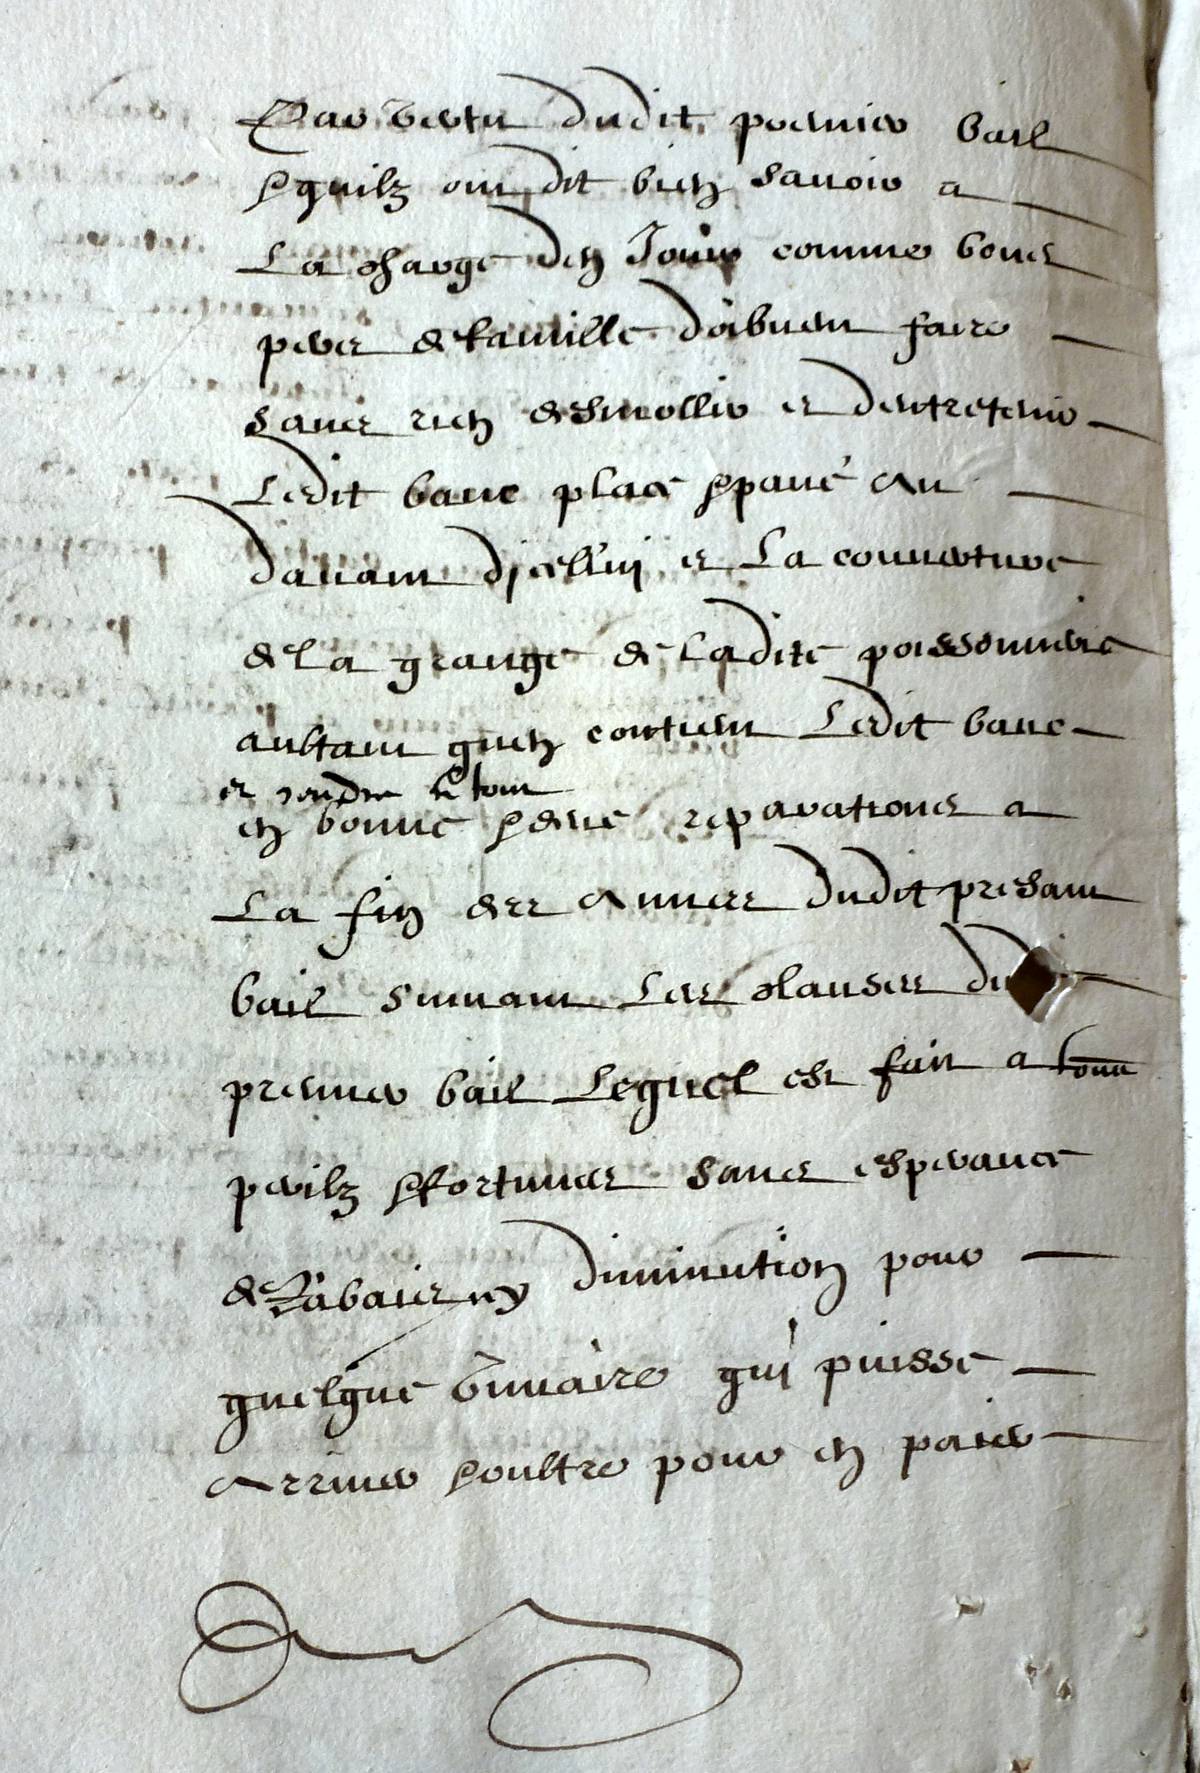 Par vertu dudit premier bail
& quilz ont dit bien savoir a
La charge den Jouir comme bons
peres de famille doibvent faire
sans rien desmollir et dentretenir
Ledit banc place & pavé au
davant dicelluy et La couverture
de La grange de Ladite poissonnerie
aultant quen contient Ledit banc
et rendre le tout
en bonne & deue reparations a
La fin des annees dudit presant
bail suivant Les clauses du
premier bail Lequel est fait a tous
perilz & fortunes sans esperance
de Rabais ny diminution pour
quelque .. qui puisse
arriver & oultre pour en paier